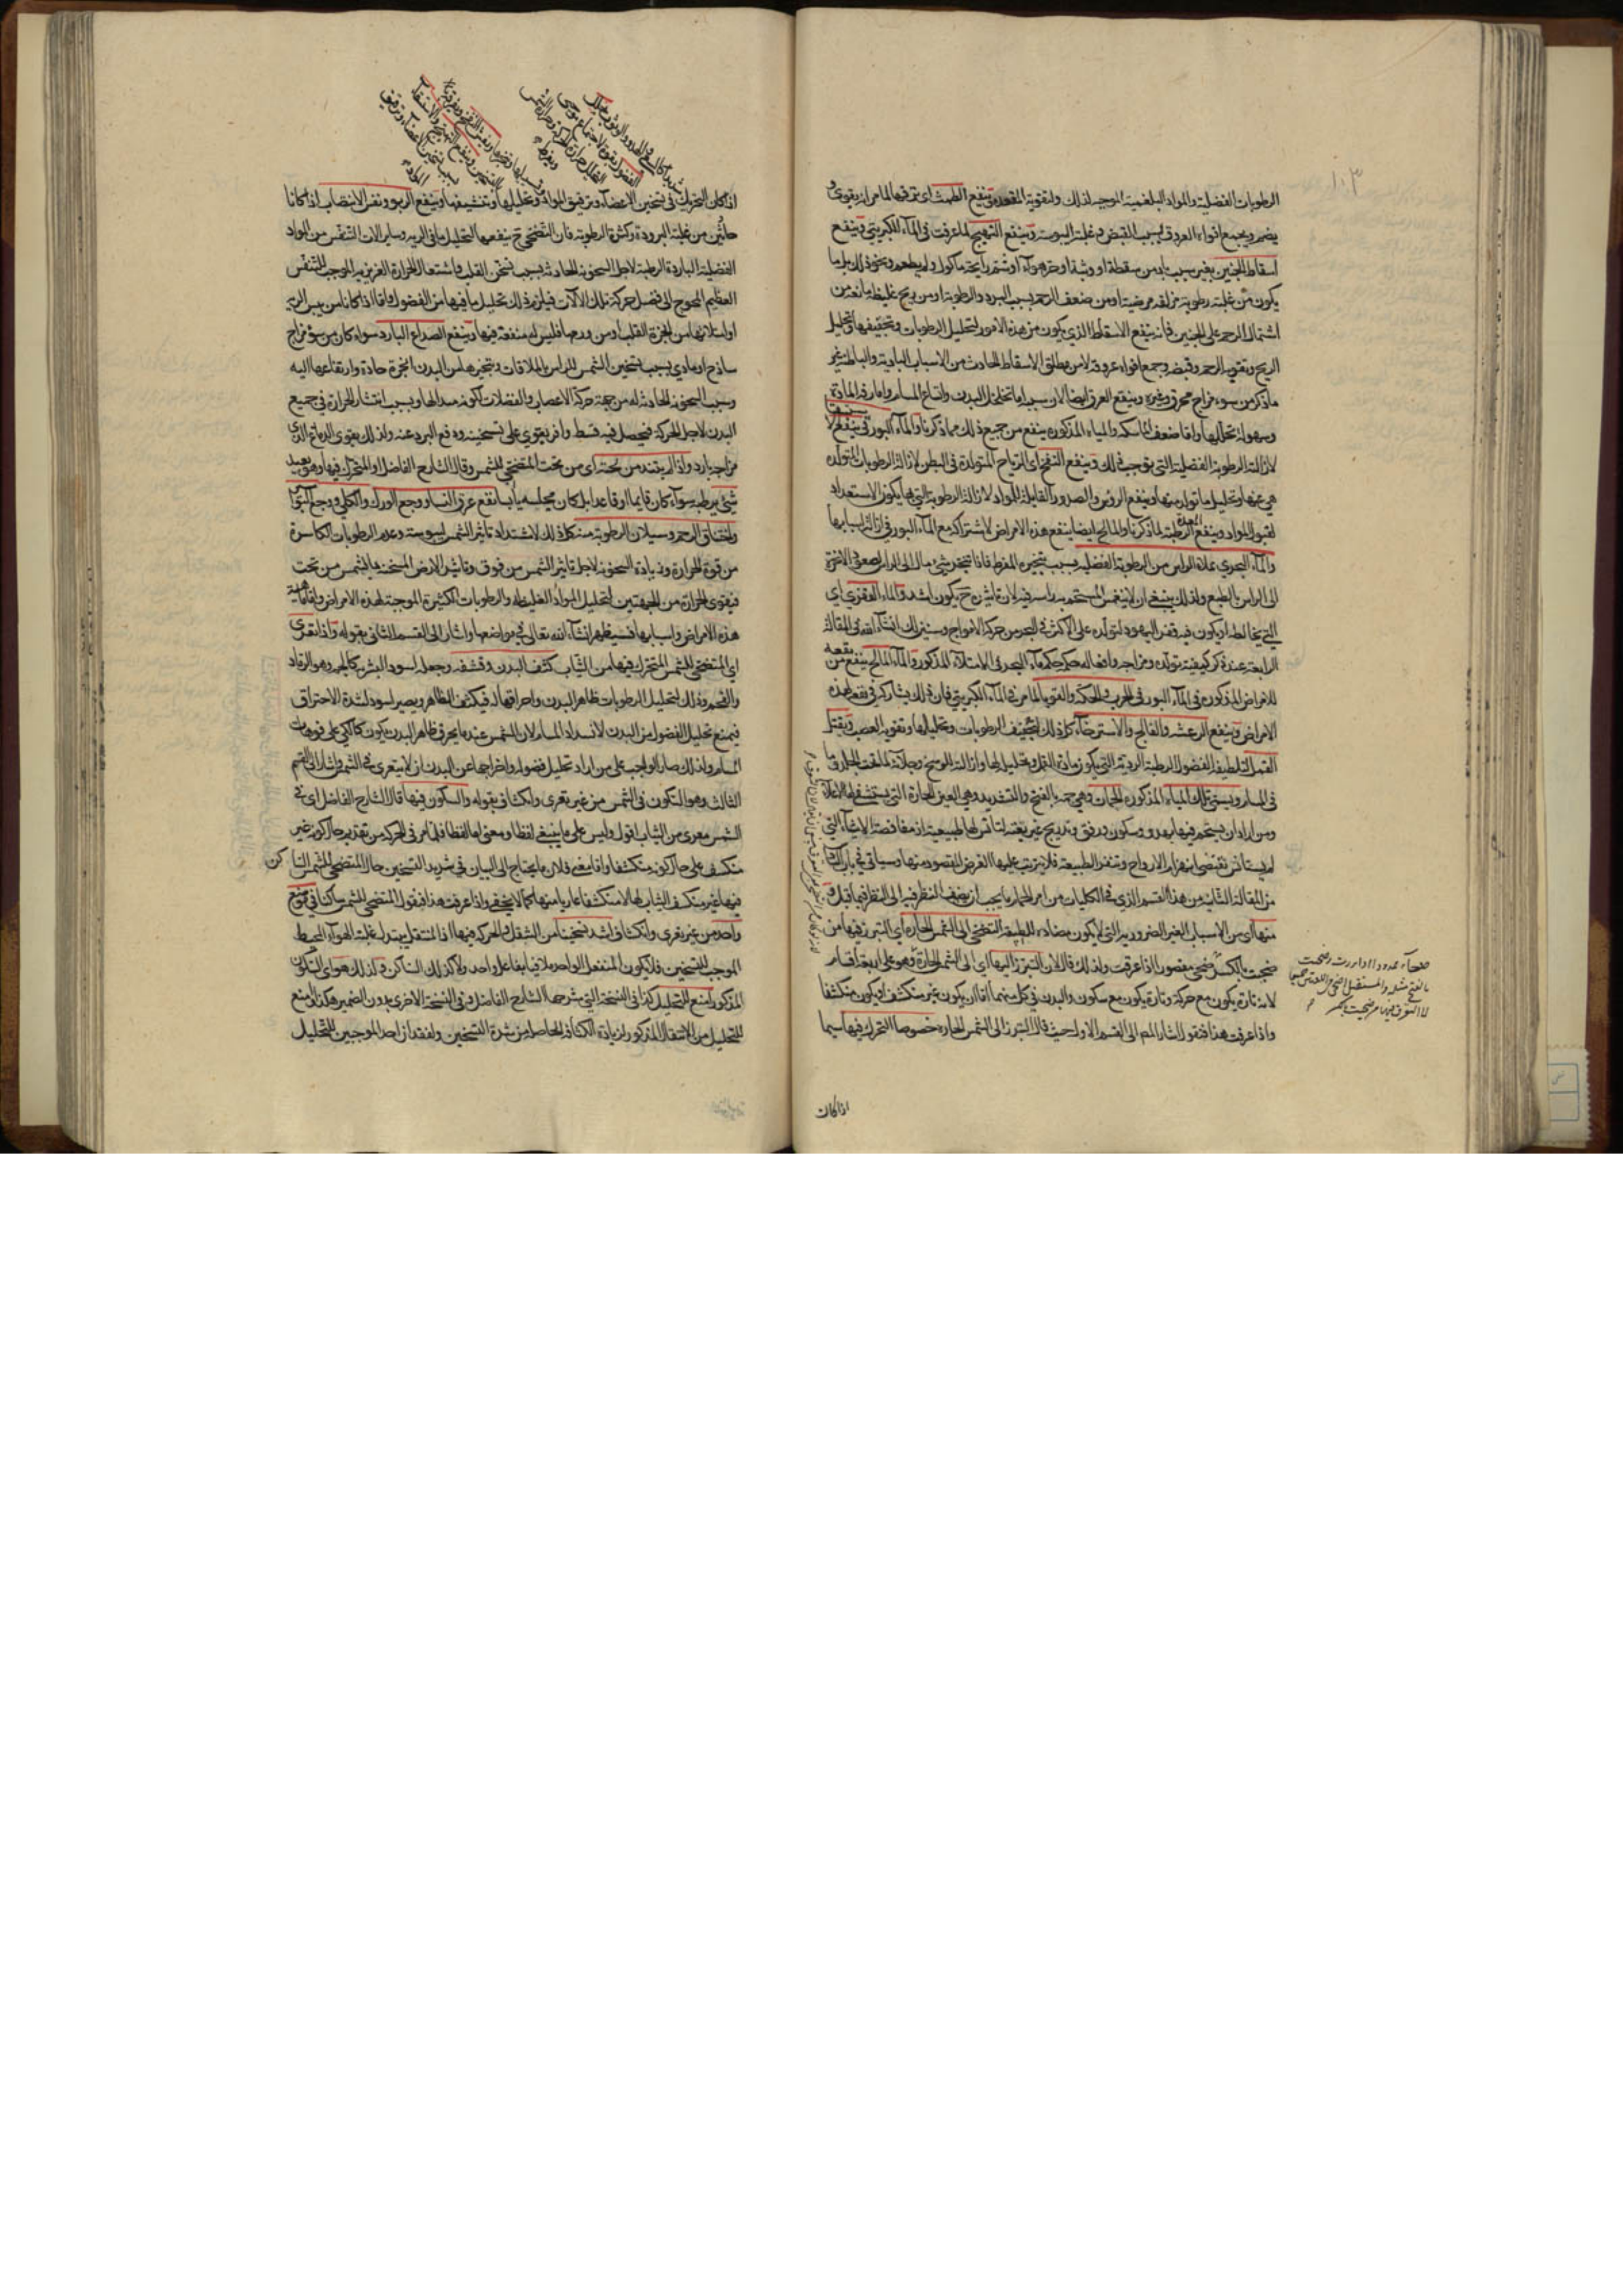 ١٠٣
الرطوبات الفضلية والمواد البلغمية الموجبة لذلك ولتقوية المقعدة وينفع الطمث اى نزفها لما مر انه يقوى و
يضم ويجمع افواه العروق بسبب القبض وغلبة اليبوسة وينفع التهيج لما عرفت فى الماء الكبريتى وينفع
اسقاط الجنين بغير سبب باد من سقطة او وثبة او حر هواء او شم رايحة ماكول ولم يطعم ونحو ذلك بل ما
يكون من غلبة رطوبة مزلقة مرضية او من ضعف الرحم بسبب البرد والرطوبة او من ريح غليظة مانعة من
اشتمال الرحم على الجنين فانه ينفع الاسقاط الذى يكون من هذه الامور لتحليل الرطوبات وتجفيفها وتحليل
الريح وتقوية الرحم وقبضه وجمع افواه عروقه لا من مطلق الاسقاط الحادث من الاسباب البادية والباطنية غير
ما ذكر من سوء مزاج محرق وغيره وينفع العرق ايضا لان سببه اما تخلخل البدن واتساع المسام واما رقة المادة
وسهولة تحللها واما ضعف الماسكة والمياه المذكورة ينفع من جميع ذلك مما ذكرنا والماء البورقى ينفع
لازالته الرطوبة الفضلية التى يوجب ذلك وينفع النفخ اى الرياح المتولدة فى البطن لازالته الرطوبات المتولدة
هى عنها وتحليل ما تولد منها وينفع الرؤس والصدور القابلة للمواد لازالته الرطوبة التى بها يكون الاستعداد
لقبول المواد وينفع المعدة الرطبة لما ذكرنا والمالح ايضا ينفع هذه الامراض لاشتراكه مع الماء البورقى فى ازالة اسبابها
والماء البحرى يملاء الراس من الرطوبة الفضلية بسبب تبخيره المفرط فاذا تبخر شئ مال الى الراس لصعود الابخرة
الى الراس بالطبع ولذلك ينبغى ان لا ينغمس المستحم براسه فيه لان تاثيره ح يكون اشد والماء القفرى اى
التى يخالطه او يكون فيه قفر اليهود لتولده على الاكثر فى البحر من حركة الامواج وسنبين لك انشاء الله فى المقالة
الرابعة عند ذكر كيفية تولده ومزاجه وافعاله حكمه حكم ماء البحر فى الامتلاء المذكور والماء المالح ينفع من
الامراض المذكورة فى الماء البورقى الجرب والحكة والقوبا لما مر فى الماء الكبريتى فان ذلك يشاركه فى نفعه لهذه
الامراض وينفع الرعشة والفالج والاسترخاء كل ذلك لتجفيف الرطوبات وتحليلها وتقوية العصب ويقتل
القمل لتلطيف الفضول الرطبة الردية التى يكون مادة القمل وتحليل لها وازالته الوسخ وجلائه لما تحت الجلد وما
فى المسام ويسمى تلك المياه المذكورة الحمات وهى حمة بالفتح والتشديد وهى العين الحارة التى يستشفى بها الاعلاء
ومن اراد ان يستحم فيها بهدو وسكون ورفق وتدريج غير بغتة لتانس لها الطبيعة اذ مفاجاة الاشياء التى
لم يستانس تقتضى انهزام الارواح وتنفر الطبيعة فلا يترتب عليها الغرض المقصود منها وسياتى فى باب
من المقالة الثانية من هذا القسم الذى فى الكليات من امر الحمام ما يجب ان يضيف النظر فيه الى النظر فيما قبل
منها اى من الاسباب الغير الضرورية التى لا يكون مضادة للطبيعة التضحى الى الشمس الحارة اى التبرز فيها من
ضحيت بالكسر ضحى مقصورا اذا عرقت ولذلك قال لان التبرز اليها اى الى الشمس الحارة وهو على اربعة اقسام
لانه تارة يكون مع حركة وتارة يكون مع سكون والبدن فى كل منهما اما ان يكون غير منكشف او يكون منكشفا
واذا عرفت هذا فنقول اشار المص الى القسم الاول حيث قال التبرز الى الشمس الحارة خصوصا المتحرك فيها سيما
اذا كان
اذا كان التحرك فى تسخين الاعضاء وترقيق المواد وتحليلها وتنشيفها وينفع الربو ونفس الانتصاب اذا كانا
حادثين من غلبة البرودة وكثرة الرطوبة فان التضحى ح ينفعهما لتحليل ما فى الرية وساير الات التنفس من المواد
الفضلية الباردة الرطبة لاجل السخونة الحادثة بسبب تسخن القلب واشتعال الحرارة الغريزية الموجب للتنفس
العظيم المحوج الى فضل حركة تلك الالات فيلزم ذلك تحليل ما فيها من الفضول واما اذا كانا من يبس الرية
او امتلائها من ابخرة القلب او من ورم حار فليس له منفعة فيها وينفع الصداع البارد سواء كان من سوء مزاج
ساذج او مادى بسبب تسخين الشمس للراس بالملاقات وتبخيرها من البدن ابخرة حادة وارتفاعها اليه
وسبب السخونة الحادثة له من جهة حركة الاعصاب والعضلات لكونه مبدا لها وبسبب انتشار الحرارة فى جميع
البدن لاجل الحركة فيحصل فيه قسط وافر يقوى على تسخينه ودفع البرد عنه ولذلك يقوى الدماغ الذى
مزاجه بارد واذا لم يبتد من تحته اى من تحت المتضحى للشمس وقال الشارح الفاضل او المتحرك فيها وهو بعيد
شئ يرطبه سواء كان قايما او قاعدا بل كان مجلسه يابسا نفع عرق النسا ووجع الورك والكلى ووجع
واختناق الرحم وسيلان الرطوبة منه كل ذلك لاشتداد تاثير الشمس ليبوسته وعدم الرطوبات الكاسرة
من قوة الحرارة وزيادة السخونة لاجل تاثير الشمس من فوق وتاثير الارض المسخنة بالشمس من تحت
فيقوى الحرارة من الجهتين لتحليل المواد الغليظة والرطوبات الكثيرة الموجبة لهذه الامراض واما ماهية
هذه الامراض واسبابها فسيظهر انشاء الله تعالى فى مواضعها واشار الى القسم الثانى بقوله واذا تعرى
اى المتضحى للشمس المتحرك فيها من الثياب كثف البدن وقشفه وجعله اسود البشرة كالحمم وهو الرماد
والفحم وذلك لتحليل الرطوبات ظاهر البدن واحراقها له فيكثف الظاهر ويصير اسود لشدة الاحتراق
فيمنع تحليل الفضول من البدن لانسداد المسام لان الشمس عند ما يحرق ظاهر البدن يكون كالكى على فوهات
المسام ولذلك صار الواجب على من اراد تحليل فضوله واخراجها عن البدن ان لا يتعرى فى الشمس واشار الى القسم
الثالث وهو السكون فى الشمس من غير تعرى وانكشاف بقوله والسكون فيها قال الشارح الفاضل اى فى
الشمس معرى من الثياب اقول وليس على ما ينبغى لفظا ومعنى اما لفظا فلما مر فى الحركة من تقديم حال كونه غير
منكشف على حال كونه منكشفا واما معنى فلان ما يحتاج الى البيان فى شديد التسخين حال المتضحى للشمس الساكن
فيها غير منكشف الثياب لها لا منكشفا عاريا منها كما لا يخفى واذا عرفت هذا فنقول المتضحى للشمس ساكنا فى موضع
واحد من غير تعرى وانكشاف اشد تسخينا من التنقل والحركة فيها اذ المنتقل يتبدل عليه الهواء المحيط
الموجب للتسخين فلا يكون المنفعل الواحد ملاقيا بفاعل واحد ولا كذلك الساكن ولذلك هو اى السكون
المذكور امنع للتحليل كذا فى النسخة التى شرحها الشارح الفاضل وفى النسخة الاخرى بدون الضمير هكذا امنع
للتحليل من الانتقال المذكور لزيادة الكثافة الحاصلة من شدة التسخين ولفقدان احد الموجبين للتحليل